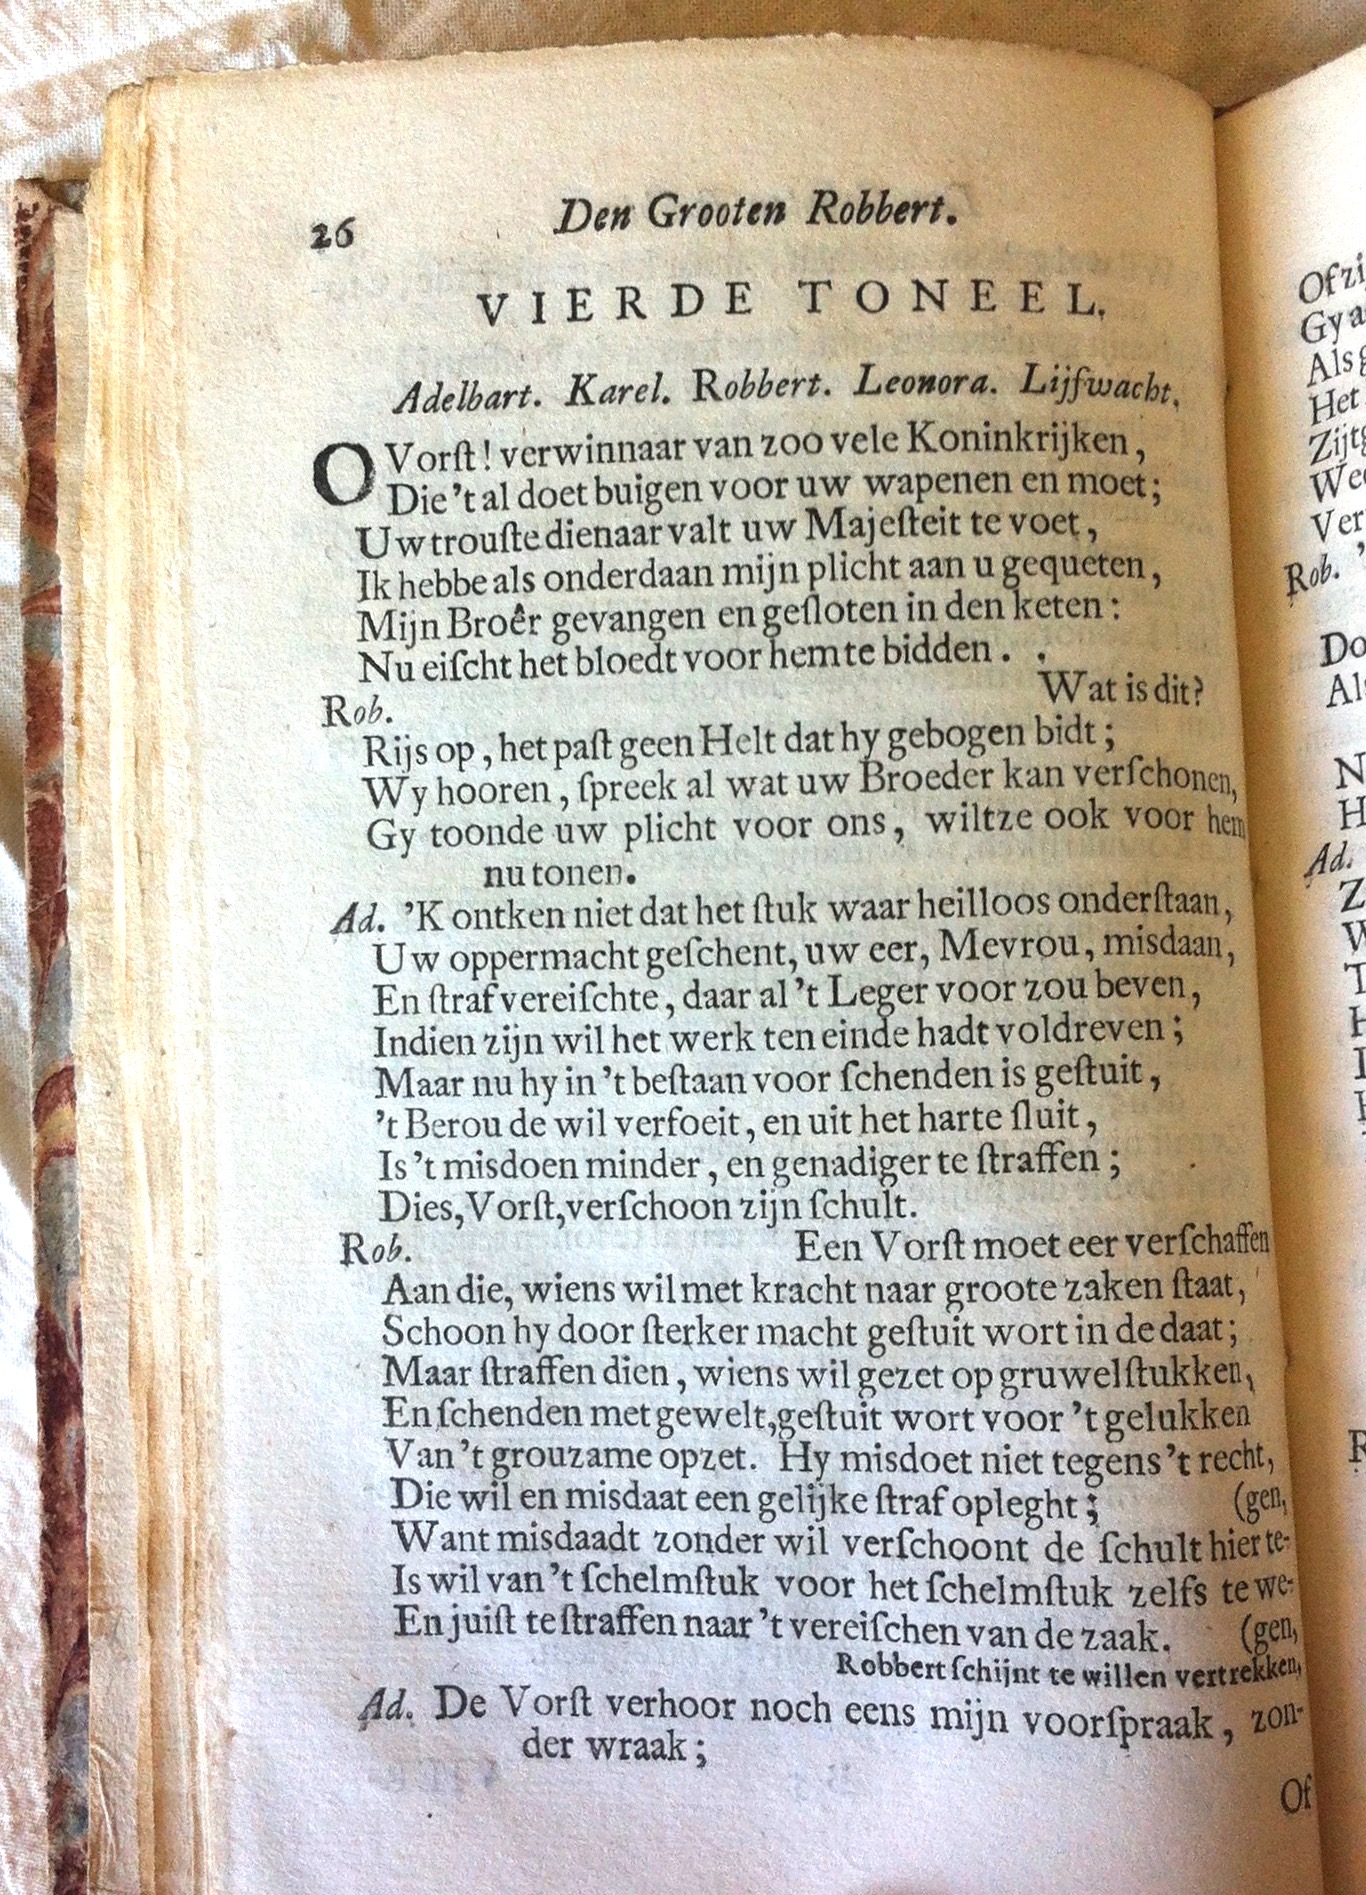 26 Den Grooten Robbert.
VIERDE TONEEL.
Adelbart. Karel. Robbert. Leonora. Lijfwacht.
O Vorſt! verwinnaar van zoo vele Koninkrijken,
Die 't al doet buigen voor uw wapenen en moet;
Uw trouſte dienaar valt uw Majeſteit te voet,
Ik hebbe als onderdaan mijn plicht aan u gequeten,
Mijn Broêr gevangen en geſloten in den keten:
Nu eiſcht het bloedt voor hem te bidden. .
Rob. Wat is dit?
Rijs op, het paſt geen Helt dat hy gebogen bidt;
Wy hooren, ſpreek al wat uw Broeder kan verſchonen,
Gy toonde uw plicht voor ons, wiltze ook voor hem
nu tonen.
Ad. 'K ontken niet dat het ſtuk waar heilloos onderſtaan,
Uw oppermacht geſchent, uw eer, Mevrou, misdaan,
En ſtraf vereiſchte, daar al 't Leger voor zou beven,
Indien zijn wil het werk ten einde hadt voldreven;
Maar nu hy in 't beſtaan voor ſchenden is geſtuit,
't Berou de wil verfoeit, en uit het harte ſluit,
Is 't misdoen minder, en genadiger te ſtraffen;
Dies, Vorſt, verſchoon zijn ſchult.
Rob. Een Vorſt moet eer verſchaffen
Aan die, wiens wil met kracht naar groote zaken ſtaat,
Schoon hy door ſterker macht geſtuit wort in de daat;
Maar ſtraffen dien, wiens wil gezet op gruwelſtukken,
En ſchenden met gewelt, geſtuit wort voor 't gelukken
Van 't grouzame opzet. Hy misdoet niet tegens 't recht,
Die wil en misdaat een gelijke ſtraf opleght; (gen,
Want misdaadt zonder wil verſchoont de ſchult hier te-
Is wil van 't ſchelmſtuk voor het ſchelmſtuk zelfs te we-
En juiſt te ſtraffen naar 't vereiſchen van de zaak. (gen,
Robbert ſchijnt te willen vertrekken,
Ad. De Vorſt verhoor noch eens mijn voorſpraak, zon-
der wraak;
Of
Of zi
Gy a
Als g
Het
Zijt g
Wee
Ver
Rob. '
Do
Al
N
H
Ad.
Z
W
T
H